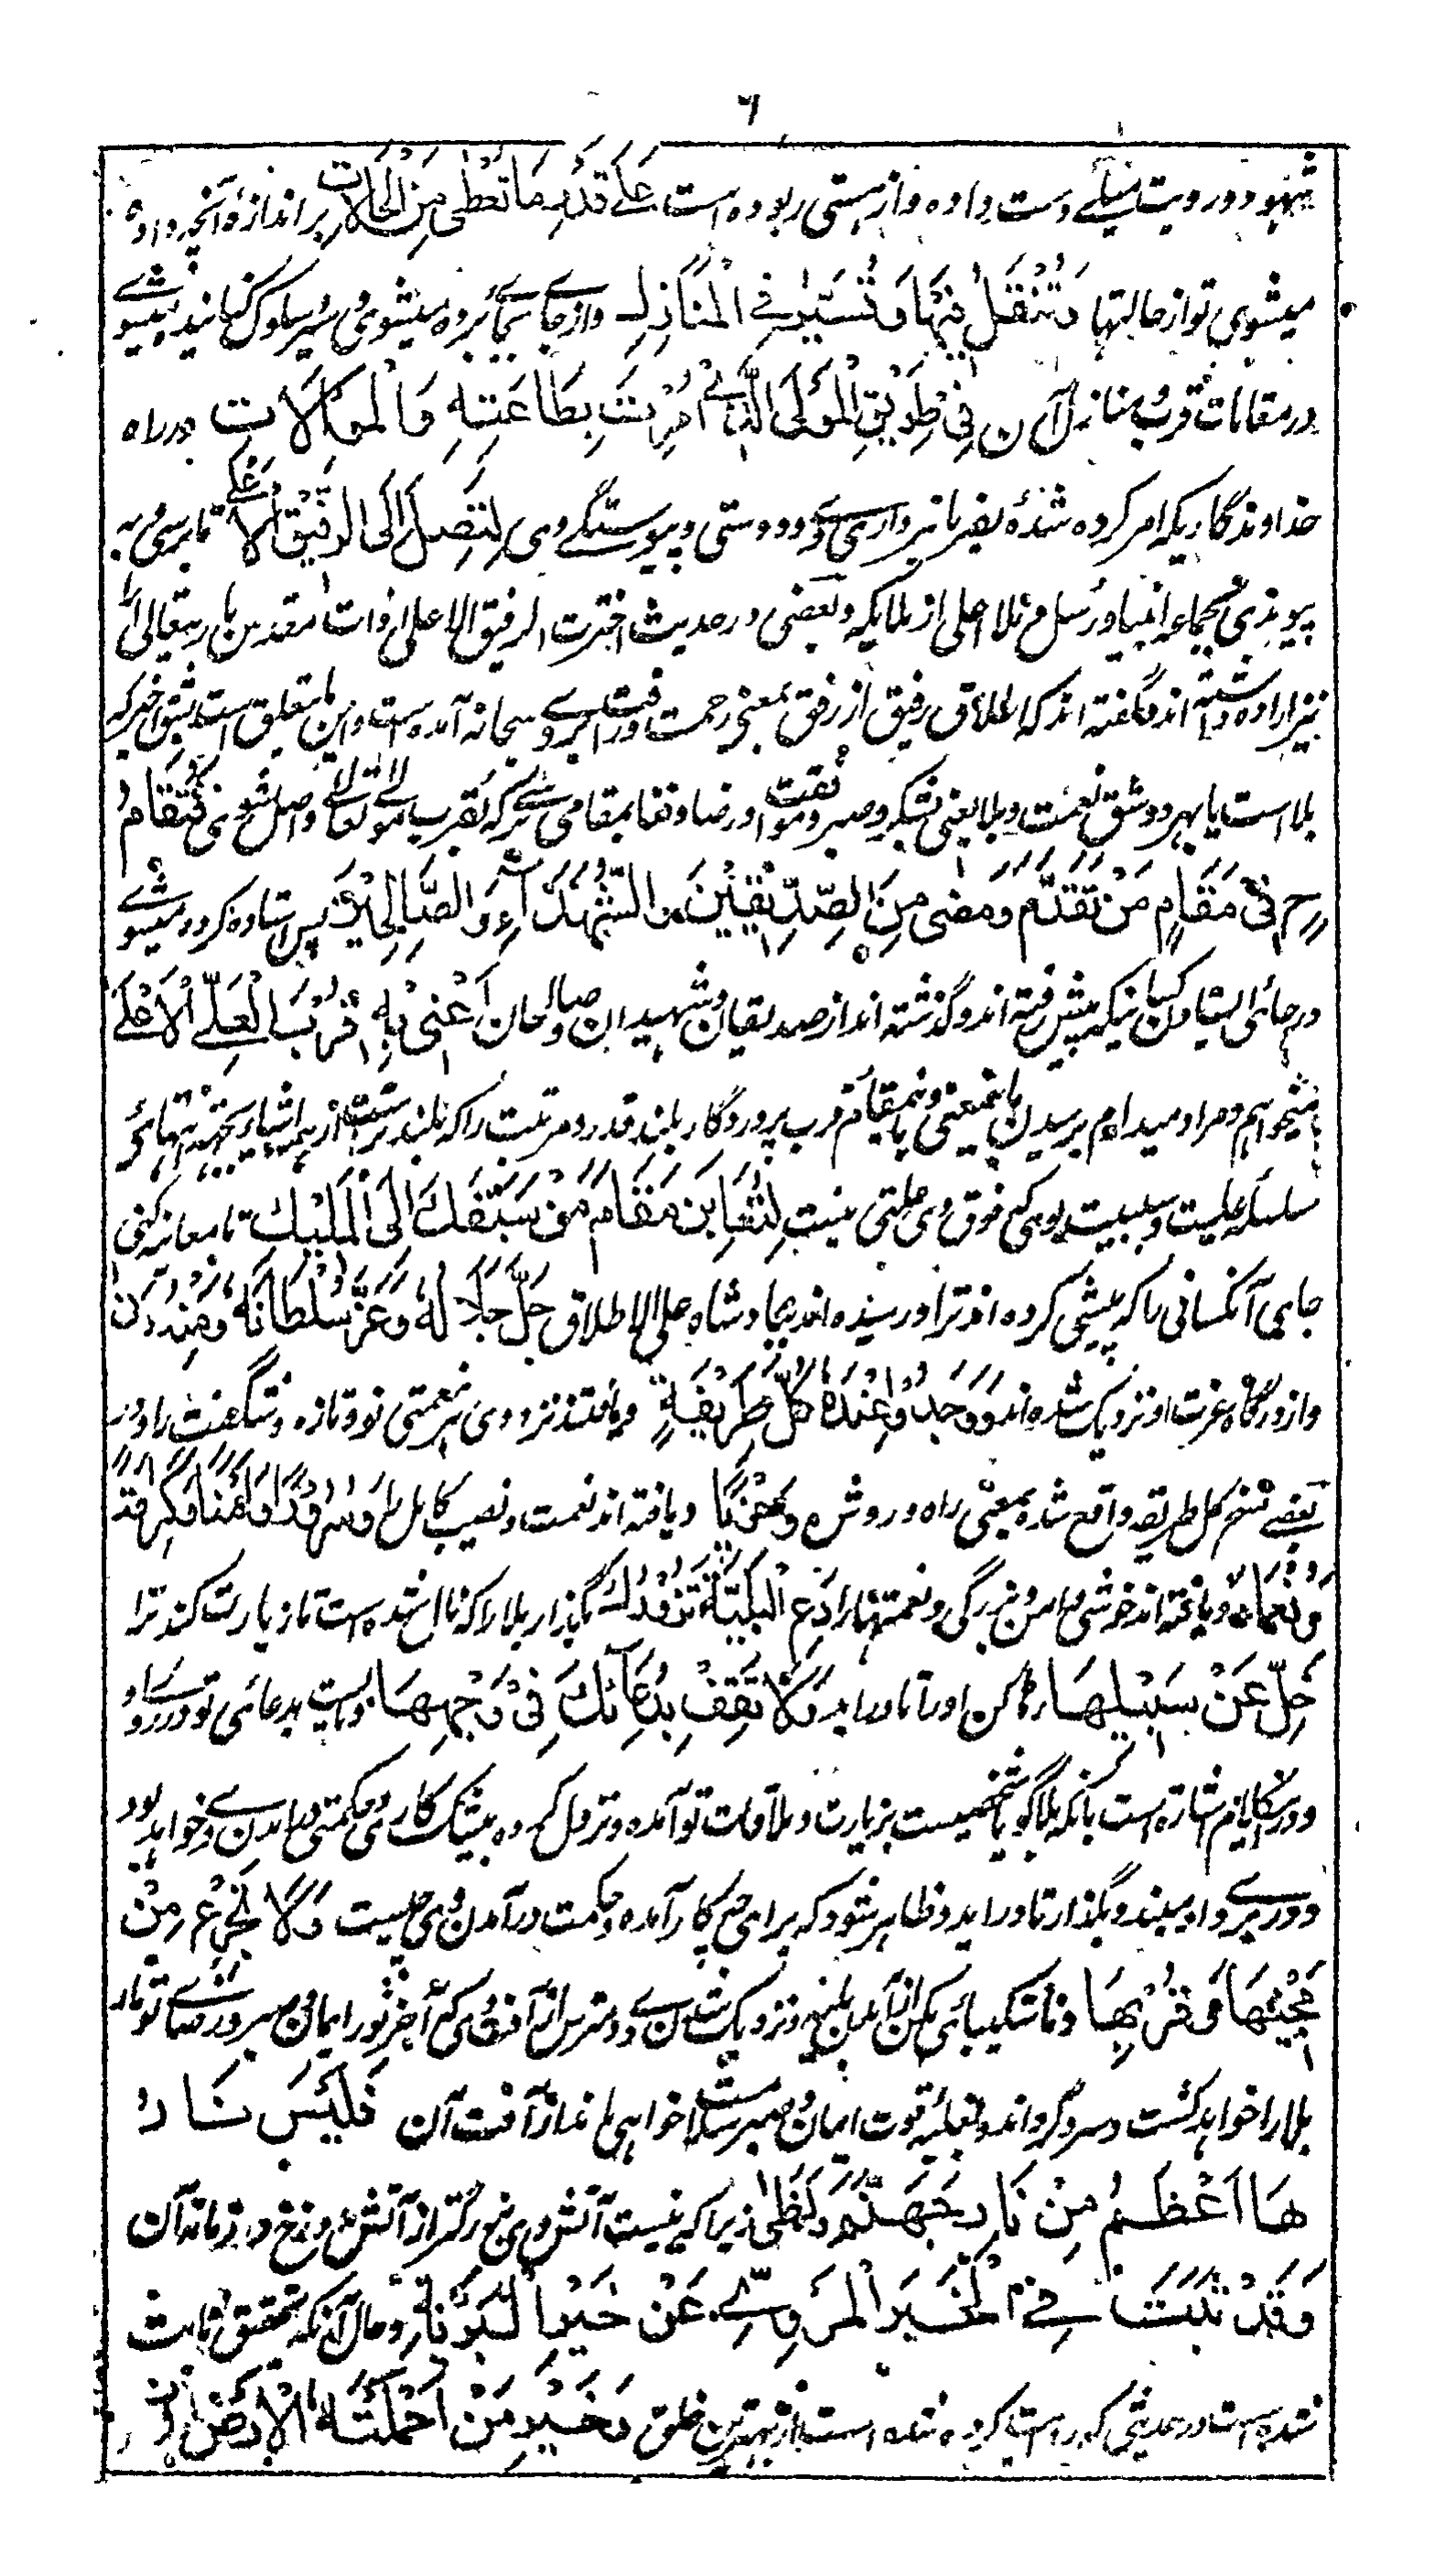 ۶
شهود و رویت مبتلے دست داده و از هستی ربوده است عَلٰے قَدْرِ مَا تُعْطٰی مِنَ الْحَالَاتِ بر اندازهٔ آنچه داده
میشوی تو از حالتها وَتُنْقَلُ فِیْهَا وَتُسَیَّرُ فِے الْمَنَازِلِ و از جائے بجائے برده میشوی و سیر و سلوک کنانیده میشوے
در مقامات قرب و منازل آن فِیْ طَرِیْقِ الْمَوْلَی الَّذِیْ اُمِرْتَ بِطَاعَتِهٖ وَالْمُوَالَاتِ در راه
خداوندگاریکه امر کرده شدهٔ بفرمانبرداری وے و دوستی و پیوستگے وی لِتَصِلَ اِلَی الرَّفِیْقِ الْاَعْلٰے تا برسی و به
پیوندی بجماعهٔ انبیا و رسل و ملاء اعلی از ملایکه و بعضی در حدیث اخترت الرفیق الاعلی ذات مقدس باریتعالی را
نیز اراده داشته اند و گفته اند که اطلاق رفیق از رفق بمعنی رحمت و رافت بروے سبحانه آمده است و این متعلق است بشق اخیر که
بلا است یا بهر دو شق نعمت و بلا یعنی بشکر و صبر و موافقت و رضا و فنا بمقامی میرسے که بقرب مولے تعالے واصل شوی فَتُقَامُ
حِ فِیْ مَقَامِ مَنْ تَقَدَّمَ وَمَضٰی مِنَ الصِّدِّیْقِیْنَ وَالشُّهَدَآءِ وَالصَّالِحِیْنَ پس استاده کرده میشوے
در جائی استادن کسانیکه پیش رفته اند و گذشته اند از صدیقان و شهیدان و صالحان اَعْنِیْ بِهٖ قُرْبَ الْعَلِیِّ الْاَعْلٰے
میخواهم و مراد میدارم برسیدن باینمعنی و باینمقام قرب پروردگار بلند قدر و مرتبت را که بلندتر است از همه اشیا بجهة انتهائے
سلسلهٔ علیت و سببیت بوی که فوق وی علتی نیست لِتُعَایِنَ مَقَامَ مَنْ سَبَقَكَ اِلَی الْمَلِیْكِ تا معاینه کنی
جای آنکسانی را که پیشی کرده اند ترا و رسیده اند بپادشاه علی الاطلاق جَلَّ جَلَالُهٗ وَعَزَّ سُلْطَانُهٗ وَمِنْهُ دَنٰی
و از درگاه عزت او نزدیک شده اند وَوَجَدُوْا عِنْدَهٗ كُلَّ طَرِیْفَةٍ و یافتند نزد وی هر نعمتی نو و تازه و شگفت را و در
بعضے نسخ کل طریقه واقع شده بمعنی راه و روش و یافته اند نعمت و نصیب کامل را وَسُرُوْرًا وَاَمْنًا وَكَرَامَةً
وَنُعْمَاهُ و یافته اند خوشی و امن و بزرگی و نعمتها را دَعِ الْبَلِیَّةَ تَزُوْرُكَ بگذار بلا را که نازل شده است تا زیارت کند ترا
خَلِّ عَنْ سَبِیْلِهَا رها کن او را تا در آید وَلَا تَقِفْ بِدُعَآئِكَ فِیْ وَجْهِهَا و مایست بدعائی تو در رو او
و درین کلام اشارة است بآنکه بلا گویا شخصیست بزیارت و ملاقات تو آمده و نزول کرده بیشک کاری و حکمتی در آمدن وے خواهد بود
و در بروے او مبند و بگذار تا در اید و ظاهر شود که برای چه کار آمده و حکمت در آمدن وی چیست وَلَا تَجْزَعْ مِنْ
مَجِیْئِهَا وَقُرْبِهَا و ناشکیبائی مکن از آمدن بلیه و نزدیک شدن وے و مترس از آفت وی که آخر نور ایمان و صبر و رضائے تو نار
بلا را خواهد کشت و سرد گرداند و بغلبه قوت ایمان و صبر سلامت خواهی ماند از آفت آن فَلَیْسَ نَارُ
هَا اَعْظَمُ مِنْ نَارِ جَهَنَّمَ وَلَظٰی زیرا که نیست آتش وی بزرگتر از آتش دوزخ و زبانه آن
وَقَدْ ثَبَتَ فِے الْخَبَرِ الْمَرْوِیِّ عَنْ خَیْرِ الْبَرِیَّةِ و حال آنکه بتحقیق ثابت
شده است در حدیثی که روایت کرده شده است از بهترین خلق وَخَیْرِ مَنْ اَقَلَّتْهُ الْاَرْضُ